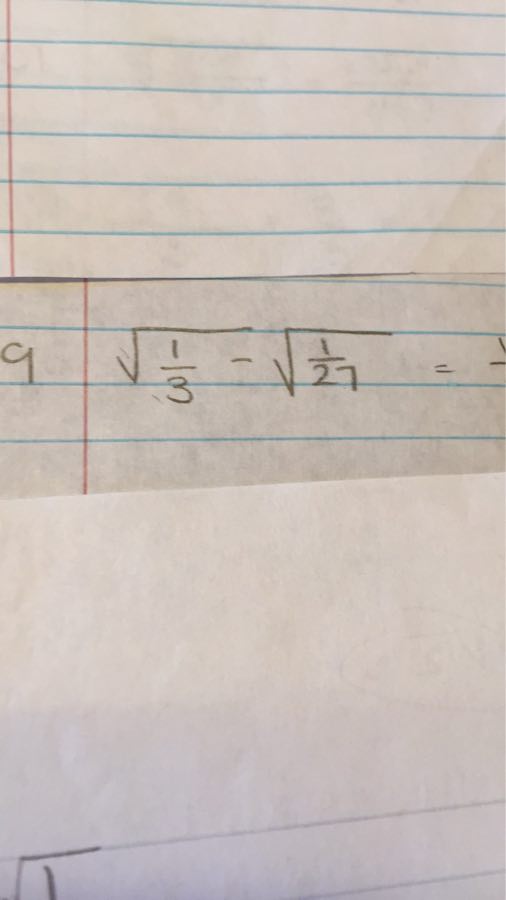 9 √(1/3) - √(1/27) =
√1